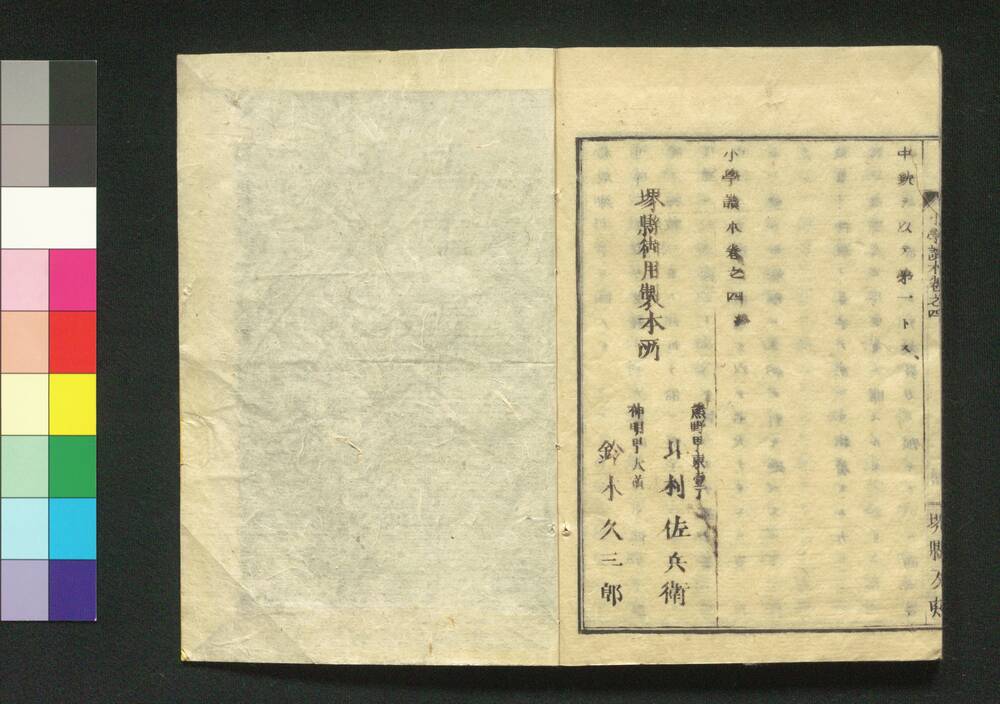 小學讀本卷之四
堺縣
中欽ヲ以テ第一トス、
小學讀本卷之四終
堺縣御用製本所
熊野甲東壹丁
北村佐兵衛
神明甲大道
鈴木久三郎